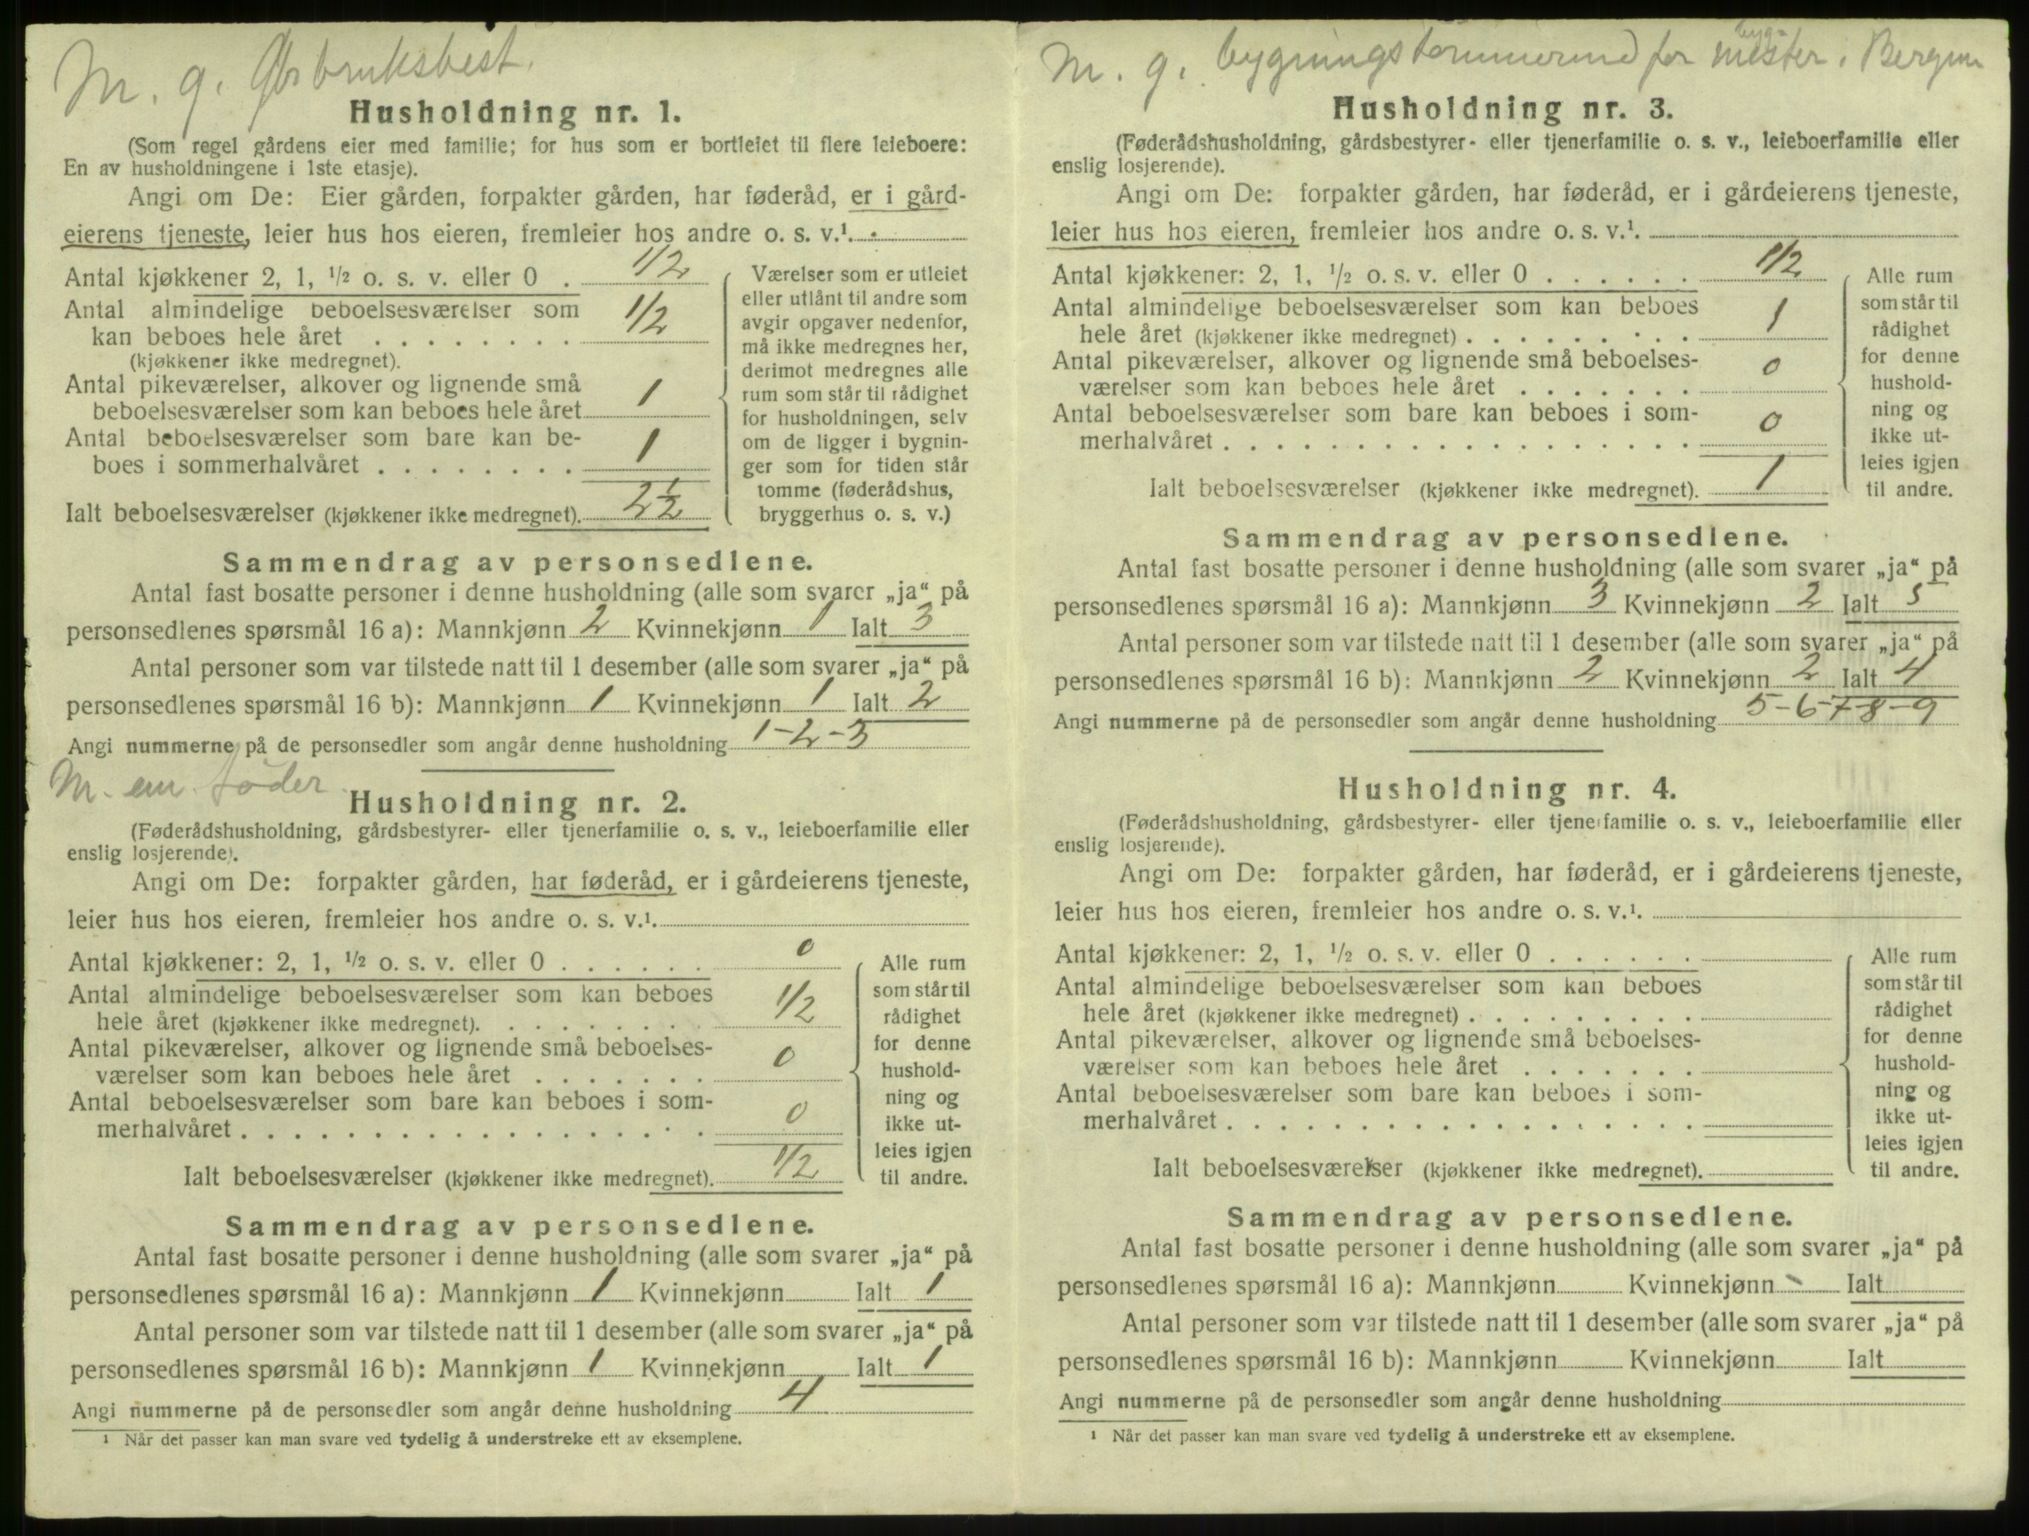 M. g. Gårbruksbest.
Husholdning nr. 1.
(Som regel gårdens eier med familie; for hus som er bortleiet til flere leieboere:
En av husholdningene i 1ste etasje).
Angi om De: Eier gården, forpakter gården, har føderåd, er i gård-
eierens tjeneste, leier hus hos eieren, fremleier hos andre o. s. v.¹.
Antal kjøkkener 2, 1, ½ o. s. v. eller 0 . 1/2
Antal almindelige beboelsesværelser som
kan beboes hele året . . . . . . . . 1/2
(kjøkkener ikke medregnet).
Antal pikeværelser, alkover og lignende små
beboelsesværelser som kan beboes hele året 1
Antal beboelsesværelser som bare kan be-
boes i sommerhalvåret . . . . . . . . 1
Ialt beboelsesværelser (kjøkkener ikke medregnet). 2 1/2
Værelser som er utleiet
eller utlånt til andre som
avgir opgaver nedenfor,
må ikke medregnes her,
derimot medregnes alle
rum som står til rådighet
for husholdningen, selv
om de ligger i bygnin-
ger som for tiden står
tomme (føderådshus,
bryggerhus o. s. v.)
Sammendrag av personsedlene.
Antal fast bosatte personer i denne husholdning (alle som svarer „ja“ på
personsedlenes spørsmål 16 a): Mannkjønn 2 Kvinnekjønn 1 Ialt 3
Antal personer som var tilstede natt til 1 desember (alle som svarer „ja“ på
personsedlenes spørsmål 16 b): Mannkjønn 1 Kvinnekjønn 1 Ialt 2
Angi nummerne på de personsedler som angår denne husholdning 1-2-3
M. em. føder.
Husholdning nr. 2.
(Føderådshusholdning, gårdsbestyrer- eller tjenerfamilie o. s. v., leieboerfamilie eller
enslig losjerende).
Angi om De: forpakter gården, har føderåd, er i gårdeierens tjeneste,
leier hus hos eieren, fremleier hos andre o. s. v.¹.
Antal kjøkkener: 2, 1, ½ o. s. v. eller 0 . . . . . . 0
Antal almindelige beboelsesværelser som kan beboes
hele året (kjøkkener ikke medregnet). . . . . . . . . 1/2
Antal pikeværelser, alkover og lignende små beboelses-
værelser som kan beboes hele året . . . . . . . 0
Antal beboelsesværelser som bare kan beboes i som-
merhalvåret . . . . . . . . . . . . . . . . . . 0
Ialt beboelsesværelser (kjøkkener ikke medregnet). 1/2
Alle rum
som står til
rådighet
for denne
hushold-
ning og
ikke ut-
leies igjen
til andre.
Sammendrag av personsedlene.
Antal fast bosatte personer i denne husholdning (alle som svarer „ja“ på
personsedlenes spørsmål 16 a): Mannkjønn 1 Kvinnekjønn Ialt 1
Antal personer som var tilstede natt til 1 desember (alle som svarer „ja“ på
personsedlenes spørsmål 16 b): Mannkjønn 1 Kvinnekjønn Ialt 1
Angi nummerne på de personsedler som angår denne husholdning 4
¹ Når det passer kan man svare ved tydelig å understreke ett av eksemplene.
M. g. bygningstømmermand for bygg- mester i Bergen
Husholdning nr. 3.
(Føderådshusholdning, gårdsbestyrer- eller tjenerfamilie o. s. v., leieboerfamilie eller
enslig losjerende).
Angi om De: forpakter gården, har føderåd, er i gårdeierens tjeneste,
leier hus hos eieren, fremleier hos andre o. s. v.¹.
Antal kjøkkener: 2, 1, ½ o. s. v. eller 0 . . . . . . 1/2
Antal almindelige beboelsesværelser som kan beboes
hele året (kjøkkener ikke medregnet) . . . . . . . . . 1
Antal pikeværelser, alkover og lignende små beboelses-
værelser som kan beboes hele året . . . . . . . 0
Antal beboelsesværelser som bare kan beboes i som-
merhalvåret . . . . . . . . . . . . . . . . . . 0
Ialt beboelsesværelser (kjøkkener ikke medregnet). 1
Alle rum
som står til
rådighet
for denne
hushold-
ning og
ikke ut-
leies igjen
til andre.
Sammendrag av personsedlene.
Antal fast bosatte personer i denne husholdning (alle som svarer „ja“ på
personsedlenes spørsmål 16 a): Mannkjønn 3 Kvinnekjønn 2 Ialt 5
Antal personer som var tilstede natt til 1 desember (alle som svarer „ja“ på
personsedlenes spørsmål 16 b): Mannkjønn 2 Kvinnekjønn 2 Ialt 4
Angi nummerne på de personsedler som angår denne husholdning 5-6-7-8-9
Husholdning nr. 4.
(Føderådshusholdning, gårdsbestyrer- eller tjenerfamilie o. s. v., leieboerfamilie eller
enslig losjerende).
Angi om De: forpakter gården, har føderåd, er i gårdeierens tjeneste,
leier hus hos eieren, fremleier hos andre o. s. v.¹.
Antal kjøkkener: 2, 1, ½ o. s. v. eller 0 . . . . . .
Antal almindelige beboelsesværelser som kan beboes
hele året (kjøkkener ikke medregnet) . . . . . . . . .
Antal pikeværelser, alkover og lignende små beboelses-
værelser som kan beboes hele året . . . . . . .
Antal beboelsesværelser som bare kan beboes i som-
merhalvåret . . . . . . . . . . . . . . . . . .
Ialt beboelsesværelser (kjøkkener ikke medregnet).
Alle rum
som står til
rådighet
for denne
hushold-
ning og
ikke ut-
leies igjen
til andre.
Sammendrag av personsedlene.
Antal fast bosatte personer i denne husholdning (alle som svarer „ja“ på
personsedlenes spørsmål 16 a): Mannkjønn Kvinnekjønn Ialt
Antal personer som var tilstede natt til 1 desember (alle som svarer „ja“ på
personsedlenes spørsmål 16 b): Mannkjønn Kvinnekjønn Ialt
Angi nummerne på de personsedler som angår denne husholdning
¹ Når det passer kan man svare ved tydelig å understreke ett av eksemplene.